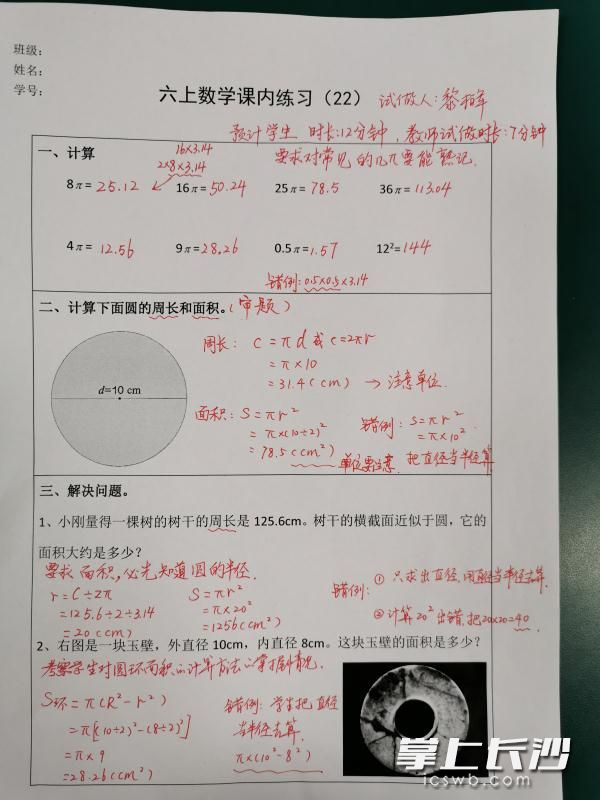 班级：
姓名：
学号：
六上数学课内练习（22） 试做人：黎
预计学生 时长：12分钟，教师试做时长：7分钟
一、计算
16×3.14
2×8×3.14
要求对常见的几π要能熟记.
8π= 25.12 16π= 50.24 25π= 78.5 36π= 113.04
4π= 12.56 9π= 28.26 0.5π= 1.57 12²= 144
错例：0.5×0.5×3.14
二、计算下面圆的周长和面积。（审题）
周长： C = πd 或 C=2πr
= π×10
= 31.4(cm) → 注意单位.
d=10 cm
面积：S=πr²
= π×(10÷2)²
= 78.5(cm²) 单位要注意.
错例：S=πr²
=π×10²
把直径当半径算
三、解决问题。
1、小刚量得一棵树的树干的周长是 125.6cm。树干的横截面近似于圆，它的
面积大约是多少？
要求面积，必先知道圆的半径.
r=C÷2π
=125.6÷2÷3.14
=20(cm)
S=πr²
=π×20²
=1256(cm²)
错例：
① 只求出直径，用直径当半径去算.
②计算20²出错，把20×20=40.
2、右图是一块玉璧，外直径 10cm，内直径 8cm。这块玉璧的面积是多少？
考察学生对圆环面积的计算方法的掌握情况.
S环=π(R²-r²)
=π[(10÷2)²-(8÷2)²]
=π×9
=28.26(cm²)
错例：学生把直径
当半径去算.
π×(10²-8²)
掌上长沙
icswb.com